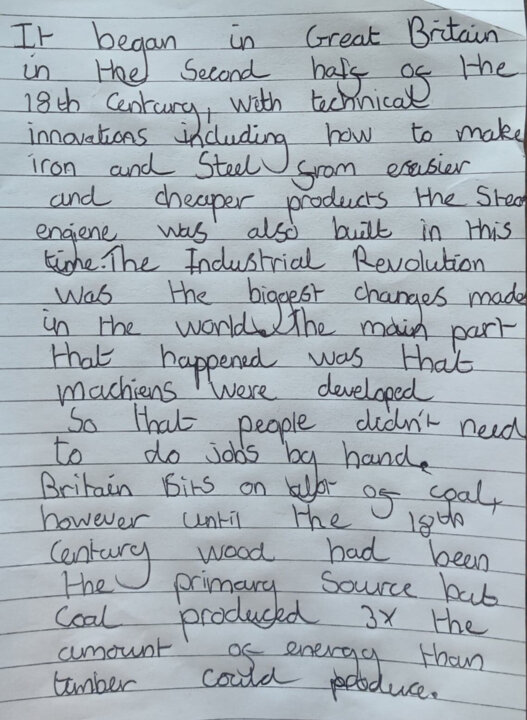 It began in Great Britain
in the Second half of the
18th Century, with technical
innovations including how to make
iron and Steel from easier
and cheaper products the Steam
engiene was also built in this
time. The Industrial Revolution
was the biggest changes made
in the world. The main part
that happened was that
machiens were developed
So that people didn't need
to do jobs by hand.
Britain sits on lot of coal,
however until the 18th
Century wood had been
the primary Source but
Coal produced 3x the
amount of energy than
timber could produce.